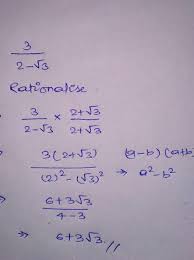 3/(2-√3)
Rationalise
3/(2-√3) × (2+√3)/(2+√3)
3(2+√3)/((2)²-(√3)²) → (a-b)(a+b) a²-b²
(6+3√3)/(4-3)
⇒ 6+3√3 //